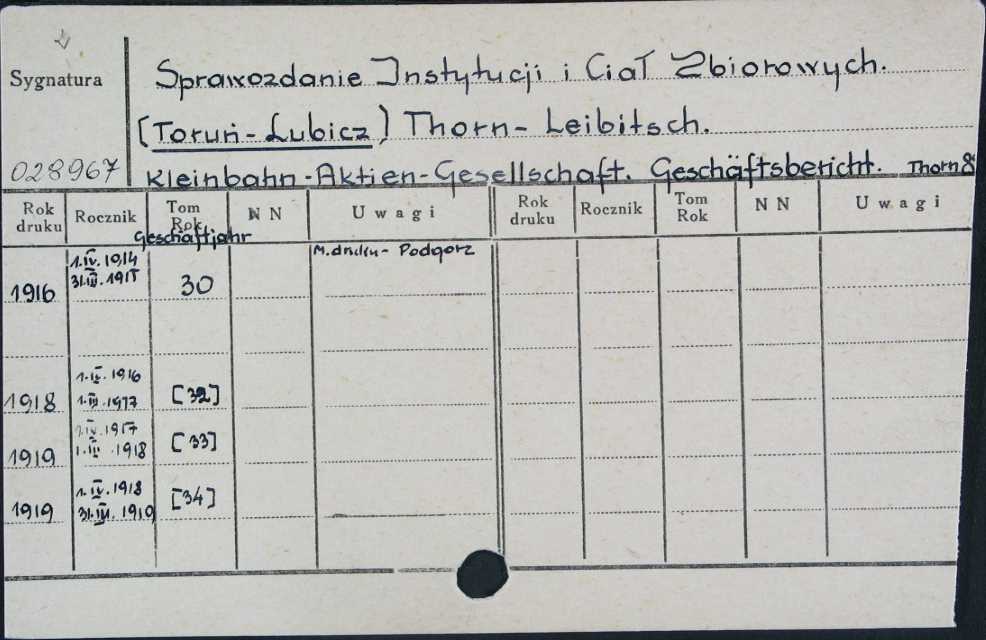 Sygnatura
Sprawozdanie Instytucji i Ciał Zbiorowych.
[Toruń-Lubicz] Thorn-Leibitsch.
028967
Kleinbahn-Aktien-Gesellschaft. Geschäftsbericht. Thorn 8°
Rok druku Rocznik Tom Rok NN Uwagi Rok druku Rocznik Tom Rok NN Uwagi
Geschäftjahr
1.IV.1914 M.druku- Podgorz
1916 31.III.1915 30
1.IV.1916
1918 1.III.1917 [32]
1.IV.1917
1919 1.III.1918 [33]
1.IV.1918
1919 31.III.1919 [34]